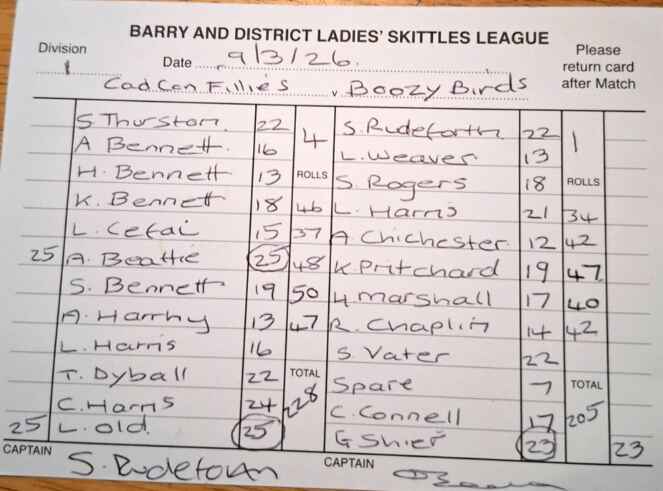 BARRY AND DISTRICT LADIES' SKITTLES LEAGUE
Division 1 Date 9/3/26. Please return card after Match
Cad Cen Fillies v Boozy Birds
S Thurston. 22 4 S. Rudeforth. 22 1
A Bennett. 16 L. Weaver 13
H. Bennett 13 ROLLS S. Rogers 18 ROLLS
K. Bennett 18 46 L. Harris 21 34
L. Cefai 15 37 A. Chichester 12 42
25 A. Beattie 25 48 K. Pritchard 19 47
S. Bennett 19 50 H. Marshall 17 40
A. Harrhy 13 47 R. Chaplin 14 42
L. Harris 16 S. Vater 22
T. Dyball 22 TOTAL Spare 7 TOTAL
C. Harris 24 228 C. Connell 17 205
25 L. Old 25 G Shier 23 23
CAPTAIN S. Rudeforth CAPTAIN